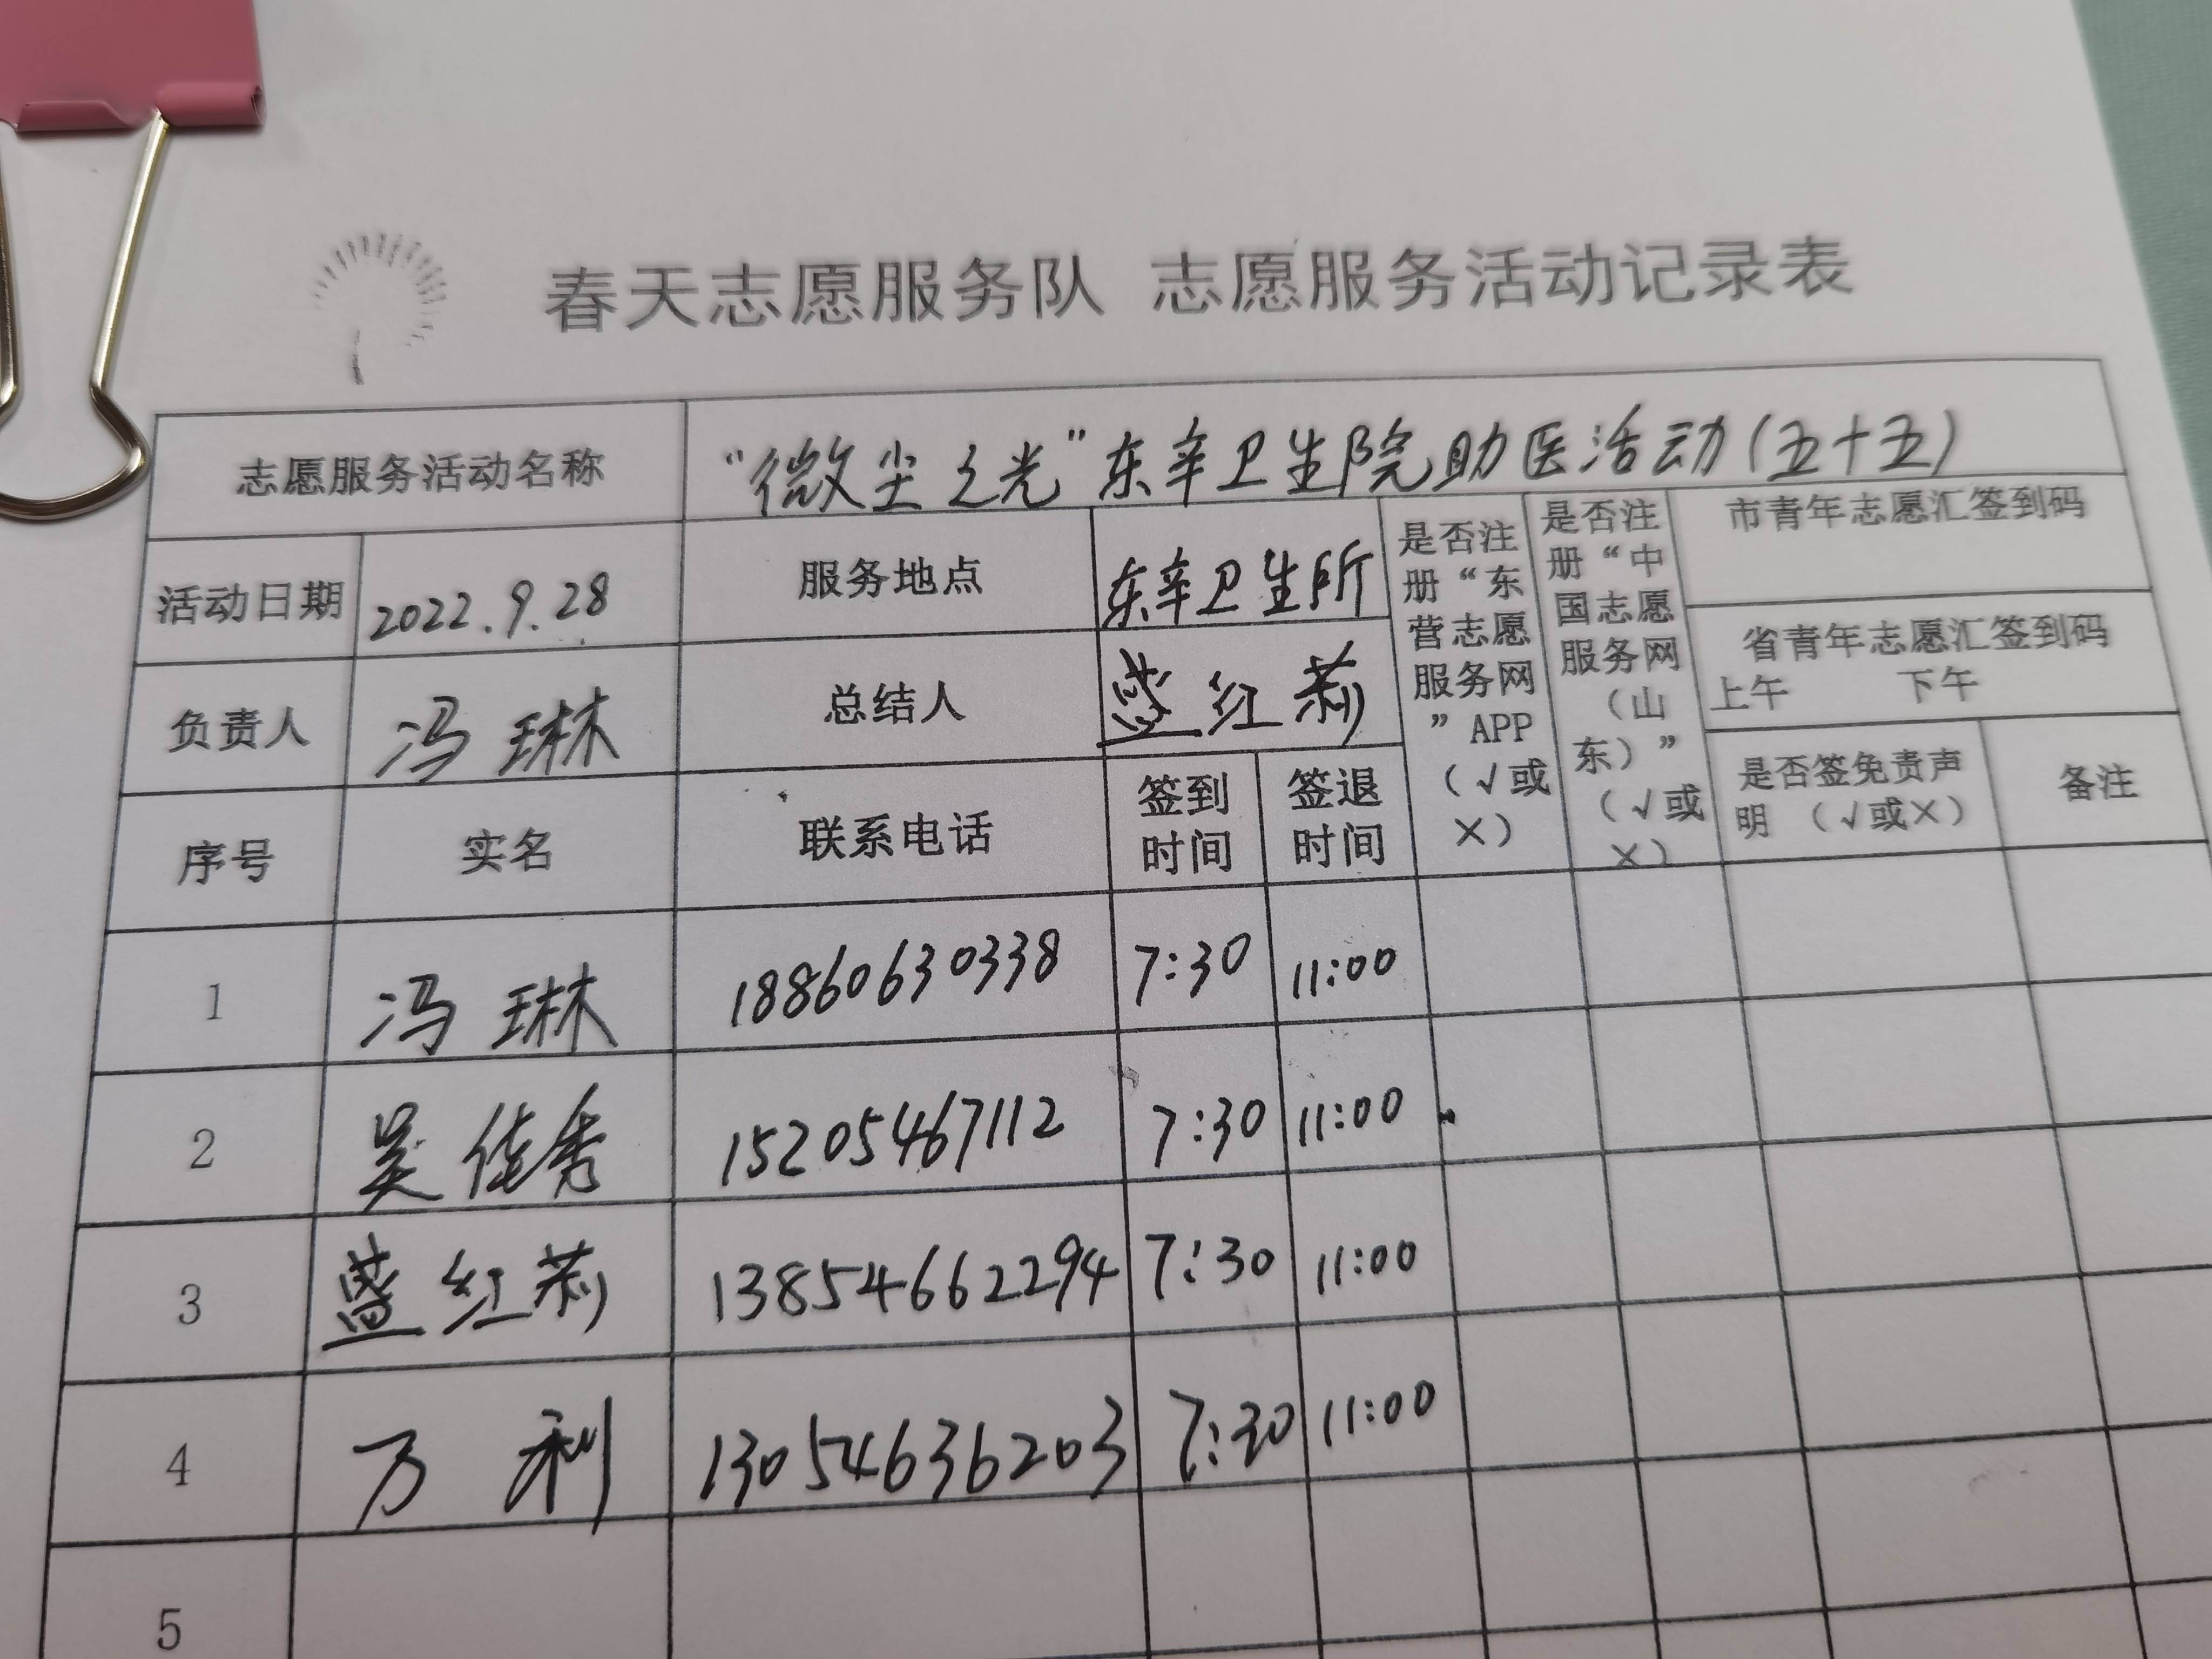 春天志愿服务队 志愿服务活动记录表
志愿服务活动名称 “微尘之光”东辛卫生院助医活动(五十五)
活动日期 2022.9.28 服务地点 东辛卫生所
是否注册“东营志愿服务网”APP（√或×）
是否注册“中国志愿服务网（山东）”（√或×）
市青年志愿汇签到码
省青年志愿汇签到码
上午 下午
负责人 冯琳 总结人 红莉
是否签免责声明 （√或×） 备注
序号 实名 联系电话 签到时间 签退时间
1 冯琳 18860630338 7:30 11:00
2 吴佳秀 15205467112 7:30 11:00
3 红莉 13854662294 7:30 11:00
4 万利 13054636203 7:30 11:00
5